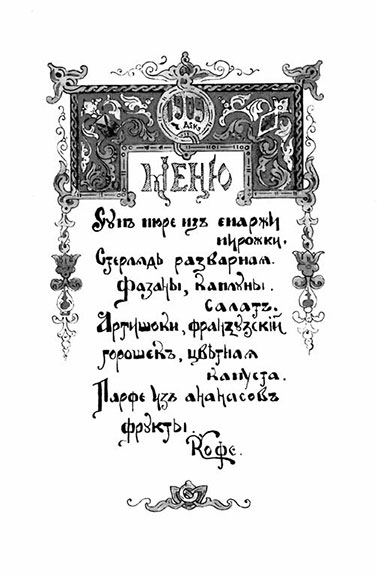 1909
МЕНЮ
Супъ пюре изъ спаржи
пирожки.
Стерлядь разварная.
Фазаны, каплуны.
салатъ.
Артишоки, французскій
горошекъ, цвѣтная
капуста.
Парфе изъ ананасовъ
фрукты.
Кофе.